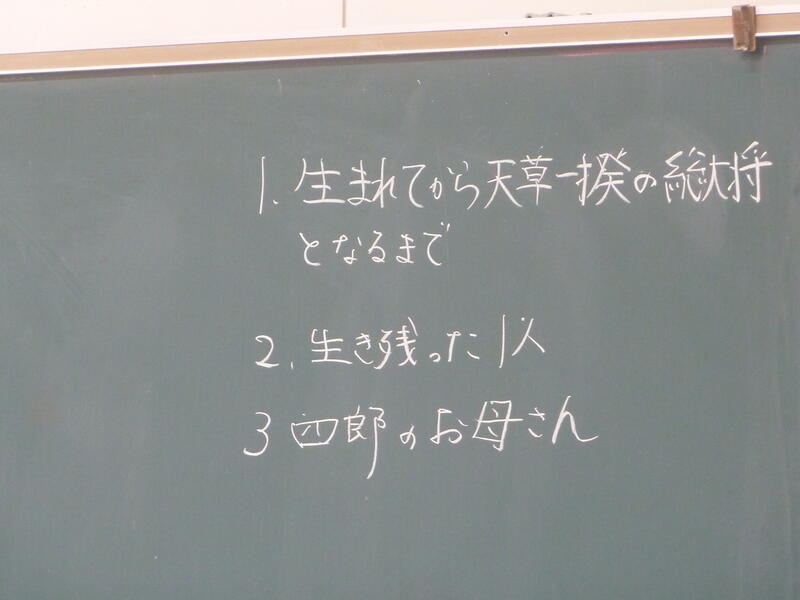 1. 生まれてから天草一揆の総大将
となるまで
2. 生き残った1人
3 四郎のお母さん